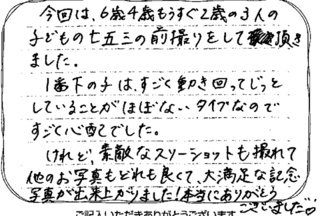 今回は、6歳4歳もうすぐ2歳の3人の
子どもの七五三の前撮りをして頂き
ました。
1番下の子は、すごく動き回ってじっと
していることがほぼないタイプなので
すごく心配でした。
けれど、素敵なスリーショットも撮れて
他のお写真もどれも良くて、大満足な記念
写真が出来上がりました!本当にありがとう
ございました♡
ご記入いただきありがとうございます